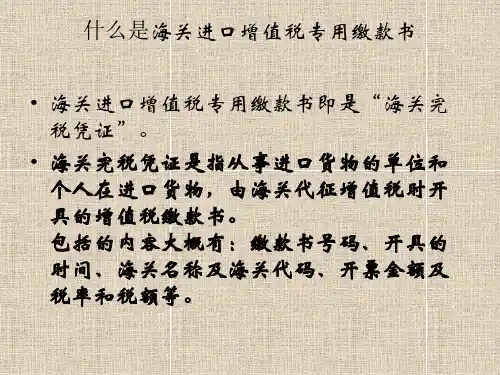 什么是海关进口增值税专用缴款书
• 海关进口增值税专用缴款书即是“海关完
税凭证”。
• 海关完税凭证是指从事进口货物的单位和
个人在进口货物，由海关代征增值税时开
具的增值税缴款书。
包括的内容大概有：缴款书号码、开具的
时间、海关名称及海关代码、开票金额及
税率和税额等。